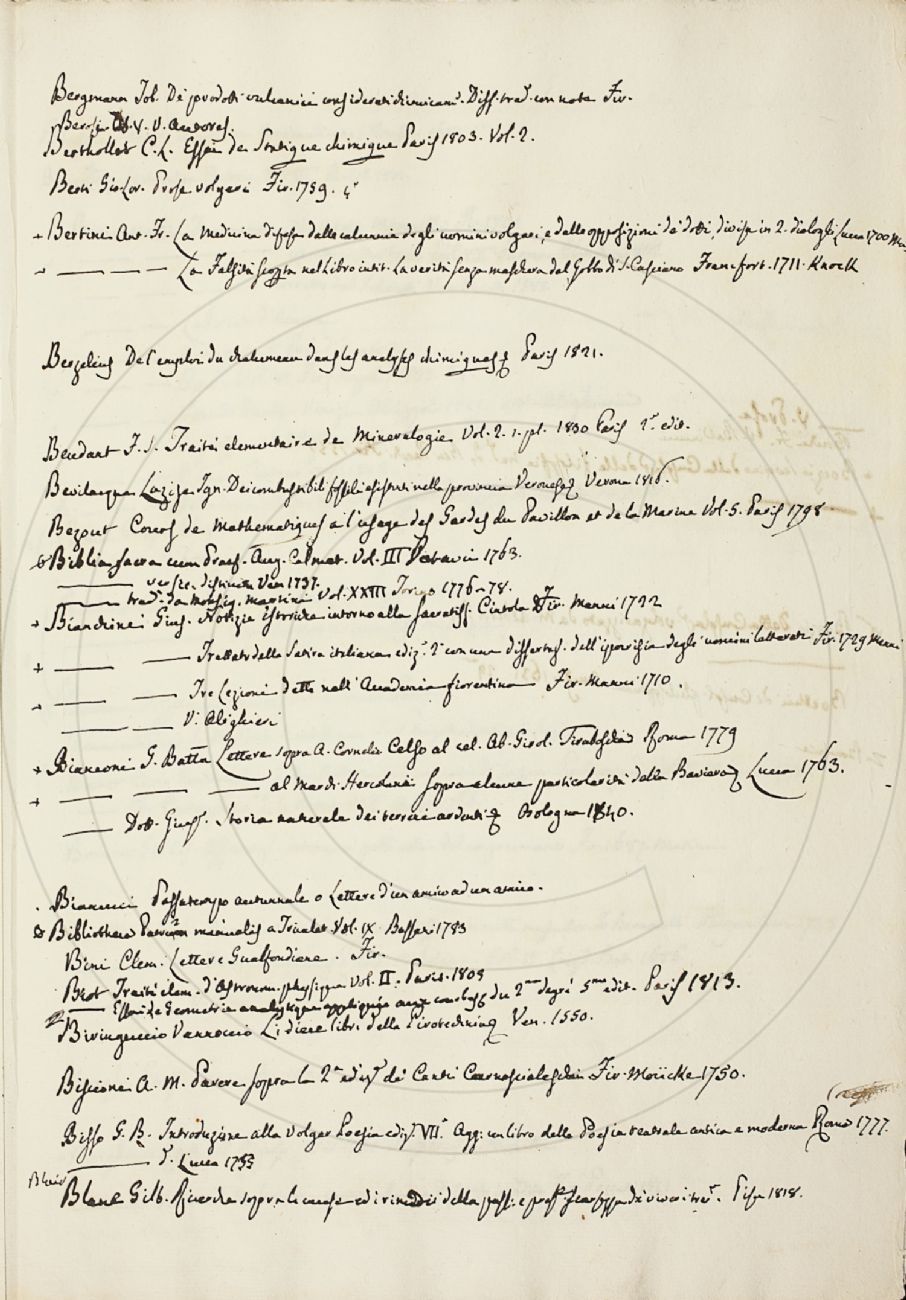 Bergmann Tob. De' prodotti vulcanici considerati chimicamᵉ. Diss. tradᵗ. con note Fir.
V. Autores.
Berthollet C. L. Essai de Statique chimique Paris 1803. Vol. 2.
Berti Gio. Lor. Prose volgari Fir. 1759. 4°
+ Bertini Ant. Fr. La Medicina difesa dalle calunnie degli uomini volgari, e dalle opposizioni de' dotti, divisa in 2. dialoghi Lucca 1700
- — — — La Falsità scoperta nel Libro intit. La verità senza maschera del Gobbo di S. Casciano Francfort. 1711. Knoch
Berzelius De l'emploi du chalumeau dans les analyses chimiques Paris 1821.
Beudant F. S. Traité elementaire de Mineralogie Vol. 2. 1. pl. 1830 Paris 2ᵉ edit.
Bevilacqua Lazise Ign. Dei combustibili fossili esistenti nella provincia Veronese Verona 1816.
Bezout Cours de Mathematiques a l'usage des Gardes du Pavillon et de la Marine Vol. 5. Paris 1798.
Biblia sacra cum Praef. Aug. Calmet. Vol. III Patavii 1763.
— Ven 1737.
— tradᵗ. da Monsig. Martini Vol. XXIII Torino 1776-78.
+ Bianchini Gius. Notizie istoriche intorno alla sacratiss. Cintola Fir. Manni 1722
+ — — Trattato della Satira italiana edizᵉ. 2ᵃ con una dissertaz. dell'ipocrisia degli uomini letterati Fir. 1729 Manni
- — — Tre Lezioni dette nell'Accademia fiorentina Fir. Manni 1710.
— — V. Alighieri
+ Bianconi G. Batta Lettere sopra A. Cornelio Celso al cel. Ab. Girol. Tiraboschi Roma 1779
+ — — — al March. Hercolani sopra alcune particolarità della Baviera Lucca 1763.
— Dott. Gius. Storia naturale dei terreni ardenti Bologna 1840.
. Bianucci Passatempo autunnale o Lettere d'un amico ad un amico.
Bibliotheca Patrum manualis a Tricalet Vol. IX. Bassani 1783
Bini Clem. Lettere Gualfondiane. Fir.
Biot Traité elem. d'Astronom. physique Vol. II. Paris. 1805
— Essai de Geometrie analytique appliquée aux courbes du 2ᵐᵉ degré 5ᵐᵉ edit. Paris 1813.
Biringuccio Vannoccio Li diece libri della Pirotechnia Ven. 1550.
Biscioni A. M. Parere sopra la 2ᵃ edizᵉ de' Canti Carnascialeschi Fir. Moücke 1750.
Bisso G. B. Introduzione alla volgar Poesia edizᵉ. VIIᵃ. Agg: un libro della Poesia teatrale antica e moderna Roma 1777.
— Lucca 1755
Blair
Blane Gilb. Ricerche sopra le cause ed i rimedii della pass. e pres. scarsezza di viveri tradᵗ. Pisa 1818.